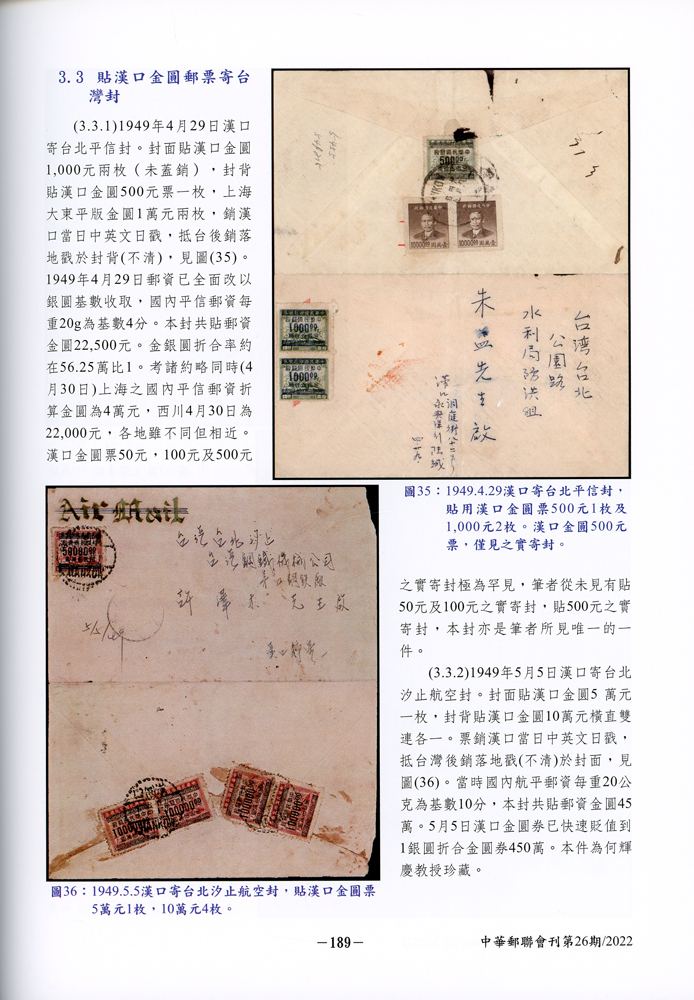 3.3 貼漢口金圓郵票寄台
灣封
(3.3.1)1949年4月29日漢口
寄台北平信封。封面貼漢口金圓
1,000元兩枚（未蓋銷），封背
貼漢口金圓500元票一枚，上海
大東平版金圓1萬元兩枚，銷漢
口當日中英文日戳，抵台後銷落
地戳於封背(不清)，見圖(35)。
1949年4月29日郵資已全面改以
銀圓基數收取，國內平信郵資每
重20g為基數4分。本封共貼郵資
金圓22,500元。金銀圓折合率約
在56.25萬比1。考諸約略同時(4
月30日)上海之國內平信郵資折
算金圓為4萬元，西川4月30日為
22,000元，各地雖不同但相近。
漢口金圓票50元，100元及500元
500
10000
10000
1000
1000
台湾台北
公園路
水利局防洪組
朱
先生啟
圖35：1949.4.29漢口寄台北平信封，
貼用漢口金圓票500元1枚及
1,000元2枚。漢口金圓500元
票，僅見之實寄封。
Air Mail
50000
HANKOW
先生啟
5/5/49
圖36：1949.5.5漢口寄台北汐止航空封，貼漢口金圓票
5萬元1枚，10萬元4枚。
之實寄封極為罕見，筆者從未見有貼
50元及100元之實寄封，貼500元之實
寄封，本封亦是筆者所見唯一的一
件。
(3.3.2)1949年5月5日漢口寄台北
汐止航空封。封面貼漢口金圓5 萬元
一枚，封背貼漢口金圓10萬元橫直雙
連各一。票銷漢口當日中英文日戳，
抵台灣後銷落地戳(不清)於封面，見
圖(36)。當時國內航平郵資每重20公
克為基數10分，本封共貼郵資金圓45
萬。5月5日漢口金圓券已快速貶值到
1銀圓折合金圓券450萬。本件為何輝
慶教授珍藏。
－189－
中華郵聯會刊第26期/2022